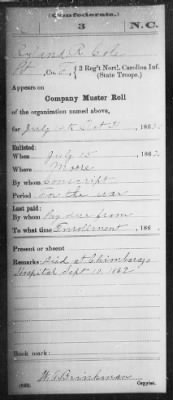 (Confederate.)
3 N.C.
R. Cole
Co. 3 Reg't North Carolina Inf.
(State Troops.)
Appears on
Company Muster Roll
of the organization named above,
for July & 186
Enlisted:
When July 15 186
Where Moore
By whom Conscript
Period for the war
Last paid:
By whom Pay due from
To what time Enrollment, 186
Present or absent
Remarks: Died at Chimborazo
Hospital Sept 10, 1862
Book mark:
Brinkman
Copyist.